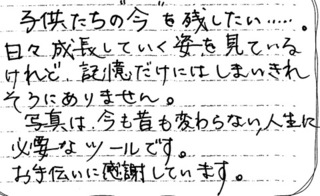 子供たちの"今"を残したい……。
日々成長していく姿を見ている
けれど、記憶だけにはしまいきれ
そうにありません。
写真は、今も昔も変わらない、人生に
必要なツールです。
お手伝いに感謝しています。